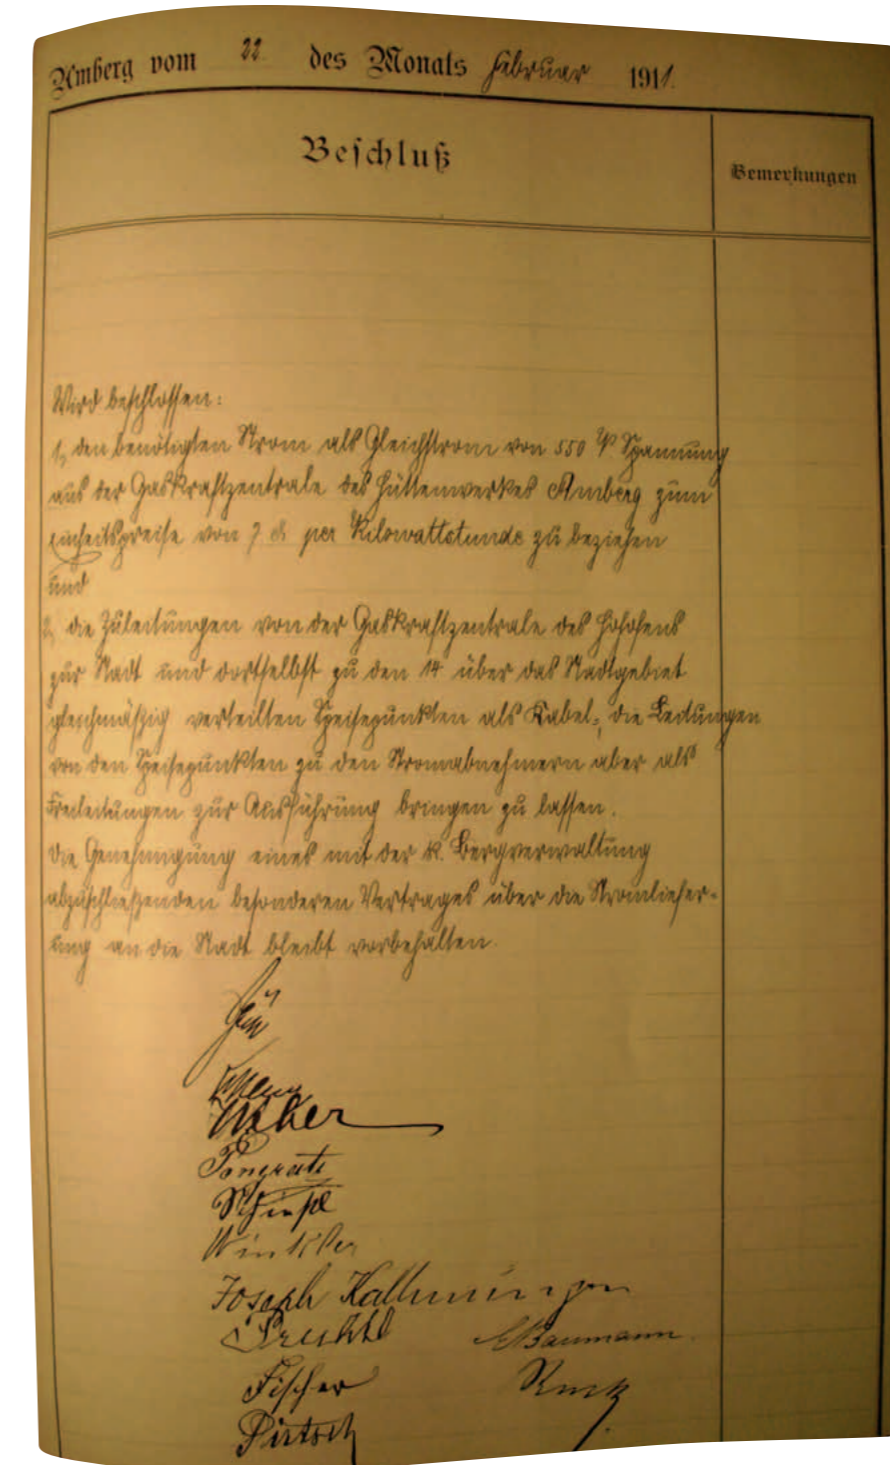 Amberg vom 22 des Monats Februar 1911.
Beschluß
Bemerkungen
Wird beschlossen:
1, den benötigten Strom als Gleichstrom von 550 V Spannung
aus der Gaskraftzentrale des Hüttenwerkes Amberg zum
Einheitspreise von 7 ₰ per Kilowattstunde zu beziehen
und
2, die Zuleitungen von der Gaskraftzentrale des Hohofens
zur Stadt und dortselbst zu den 14 über das Stadtgebiet
gleichmäßig verteilten Speisepunkten als Kabel-, die Leitungen
von den Speisepunkten zu den Stromabnehmern aber als
Freileitungen zur Ausführung bringen zu lassen.
Die Genehmigung eines mit der k. Bergverwaltung
abzuschließenden besonderen Vertrages über die Stromliefer-
ung an die Stadt bleibt vorbehalten.
Pongratz
Winkler
Joseph
Baumann
Fischer
Pirtsch